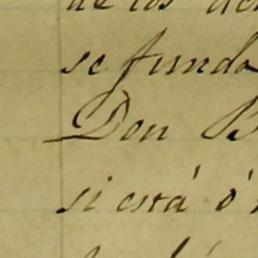 de los
se funda
Don B
si está ó